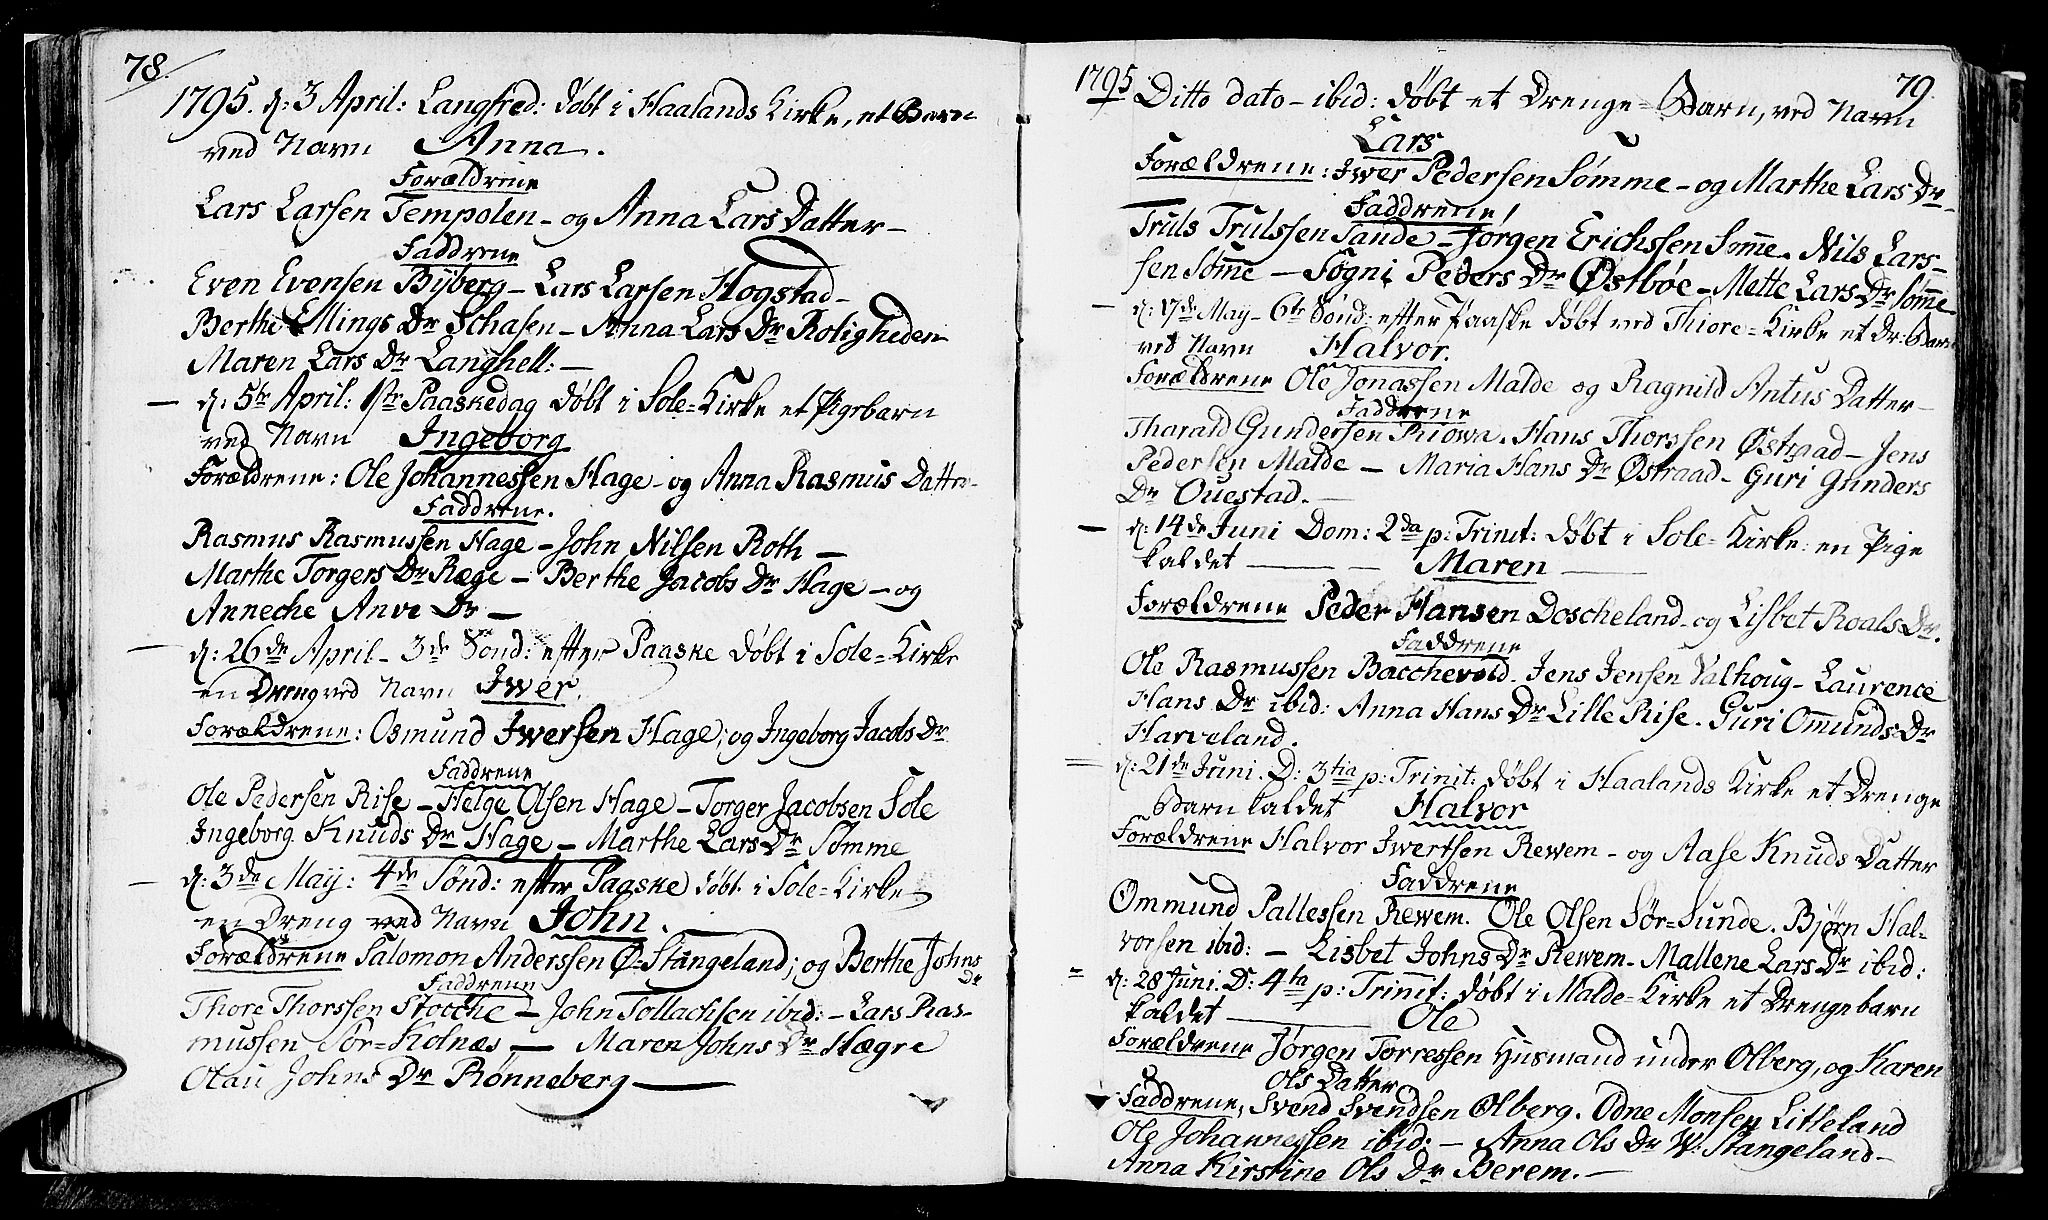 78.
1795. d: 3 April: Langfred: døbt i Haalands Kirke, et Barn
ved Navn Anna.
Forældrene
Lars Larsen Tempolen - og Anna Lars Datter -
Faddrene
Even Evensen Bÿberg - Lars Larsen Hogstad -
Berthe Ellings Dr Schasen - Anna Lars Dr Roligheden
Maren Lars Dr Langhell: -
- d: 5te April: 1ste Paaskedag døbt i Sole=Kirke et Pigebarn
ved Navn Ingeborg
Forældrene: Ole Johannessen Hage - og Anna Rasmus Datter -
Faddrene.
Rasmus Rasmussen Hage - John Nilsen Roth -
Marthe Torgers Dr Ræge - Berthe Jacobs Dr Hage - og
Anneche Dr -
- d: 26de April - 3de Sønd: efter Paaske døbt i Sole=Kirke
en Dreng ved Navn Iwer.
Forældrene: Osmund Iwersen Hage; og Ingeborg Jacobs Dr
Faddrene
Ole Pedersen Rise - Helge Olsen Hage - Torger Jacobsen Sole
Ingeborg Knuds Dr Hage - Marthe Lars Dr Sømme
- d: 3de Maÿ: 4de Sønd: efter Paaske døbt i Sole=Kirke
en Dreng ved Navn John.
Forældrene Salomon Anderssen Ø-Stangeland; og Berthe Johns
Dr
Faddrene
Thore Thorssen Stocche - John Tollachsen ibid: - Lars Ras-
mussen Sør=Kolnæs - Maren Johns Dr Hægre
Olau Johns Dr Rønneberg -
79.
1795. Ditto dato - ibid: døbt et Drenge=Barn, ved Navn
Lars
Forældrene: Iwer Pedersen Sømme - og Marthe Lars Dr -
Faddrene!
Truls Trulssen Tande - Jørgen Erichssen Sømme. Nils Lars-
sen Sømme - Søgni Peders Dr Østbøe - Mette Lars Dr Sømme
- d: 17de May - 6te Sønd: efter Paaske døbt ved Thiore=Kirke et Dr: Barn
ved Navn Halvor.
Forældrene Ole Jonassen Malde og Ragnild Antus Datter -
Faddrene
Tharald Gundersen Riowa. Hans Thorssen Østraad - Jens
Pedersen Malde - Maria Hans Dr Østraad - Guri Gunders
Dr Ouestad. -
- d: 14de Juni Dom: 2da p: Trinit: døbt i Sole=Kirke: en Pige
kaldet - - Maren -
Forældrene Peder Hansen Doscheland - og Lisbet Roals Dr.
Faddrene
Ole Rasmussen Bacchevold. Jens Jensen Valhoug - Laurence
Hans Dr ibid: Anna Hans Dr Lille Rise. Guri Omunds Dr
Harveland.
= d: 21de Juni. D: 3tia p: Trinit: døbt i Haalands Kirke et Drenge
Barn kaldet Halvor
Forældrene Halvor Iwertsen Rewem - og Aase Knuds Datter
Faddrene
Ommund Pallessen Rewem. Ole Olsen Sør=Sunde. Bjørn Hal-
vorsen ibid: - Lisbet Johns Dr Rewem - Mallene Lars Dr ibid:
= d: 28 Juni. D: 4ta p: Trinit: døbt i Malde=Kirke et Drengebarn
kaldet - Ole
Forældrene Jørgen Torressen Husmand under Olberg, og Karen
Ols Datter
Faddrene, Svend Svendsen Olberg. Odne Monsen Litleland
Ole Johannessen ibid: - Anna Ols Dr W: Stangeland -
Anna Kirstine Ols Dr Berem. -